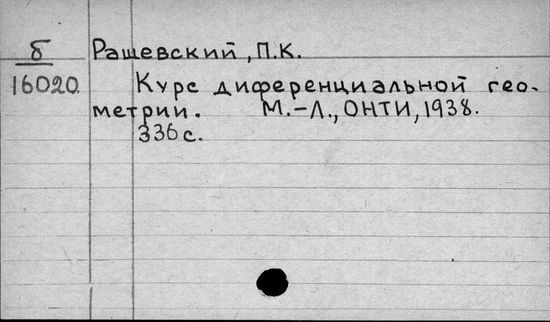 б Рашевский, П.К.
16020. Курс диференциальной гео-
метрии. М.-Л., ОНТИ, 1938.
336 с.